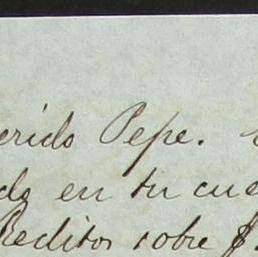 erido Pepe.
do en tu cue
Reditos sobre $